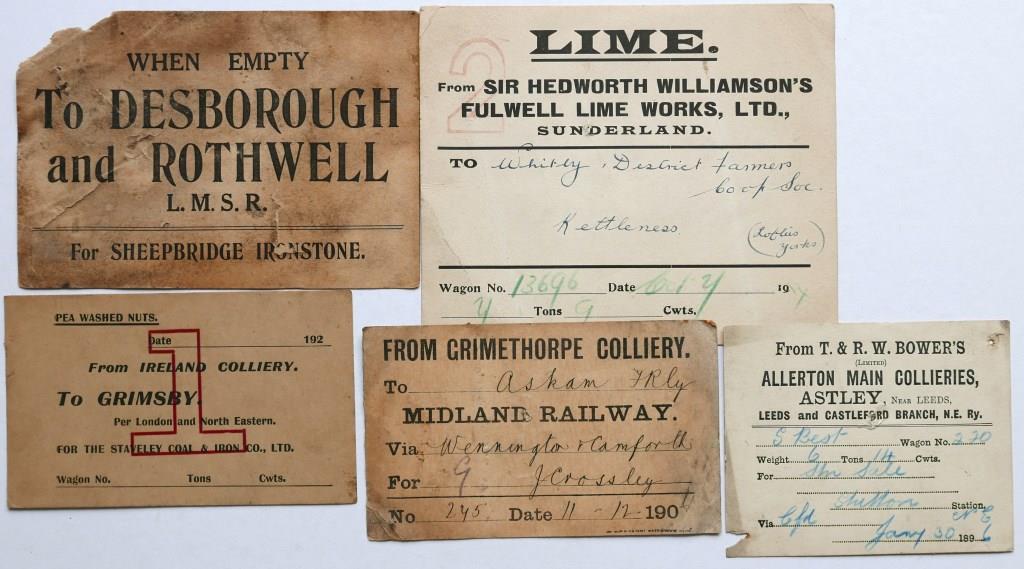 WHEN EMPTY
To DESBOROUGH
and ROTHWELL
L. M. S. R.
For SHEEPBRIDGE IRONSTONE.
2
LIME.
From SIR HEDWORTH WILLIAMSON'S
FULWELL LIME WORKS, LTD.,
SUNDERLAND.
TO Whitby District Farmers
Coop Soc.
Kettleness (Loftus Yorks)
Wagon No. 13696 Date Oct 4 19
4 Tons 9 Cwts.
PEA WASHED NUTS.
1
Date 192
From IRELAND COLLIERY.
To GRIMSBY.
Per London and North Eastern.
FOR THE STAVELEY COAL & IRON CO., LTD.
Wagon No. Tons Cwts.
FROM GRIMETHORPE COLLIERY.
To Askam F Rly
MIDLAND RAILWAY.
Via Wennington & Carnforth
For J Crossley
9
No 245. Date 11-12-190
From T. & R. W. BOWER'S
(LIMITED)
ALLERTON MAIN COLLIERIES,
ASTLEY, NEAR LEEDS,
LEEDS and CASTLEFORD BRANCH, N.E. Ry.
S Best Wagon No. 220
Weight 6 Tons 14 Cwts.
For
Station,
Via Cfd N E
Jany 30 1896